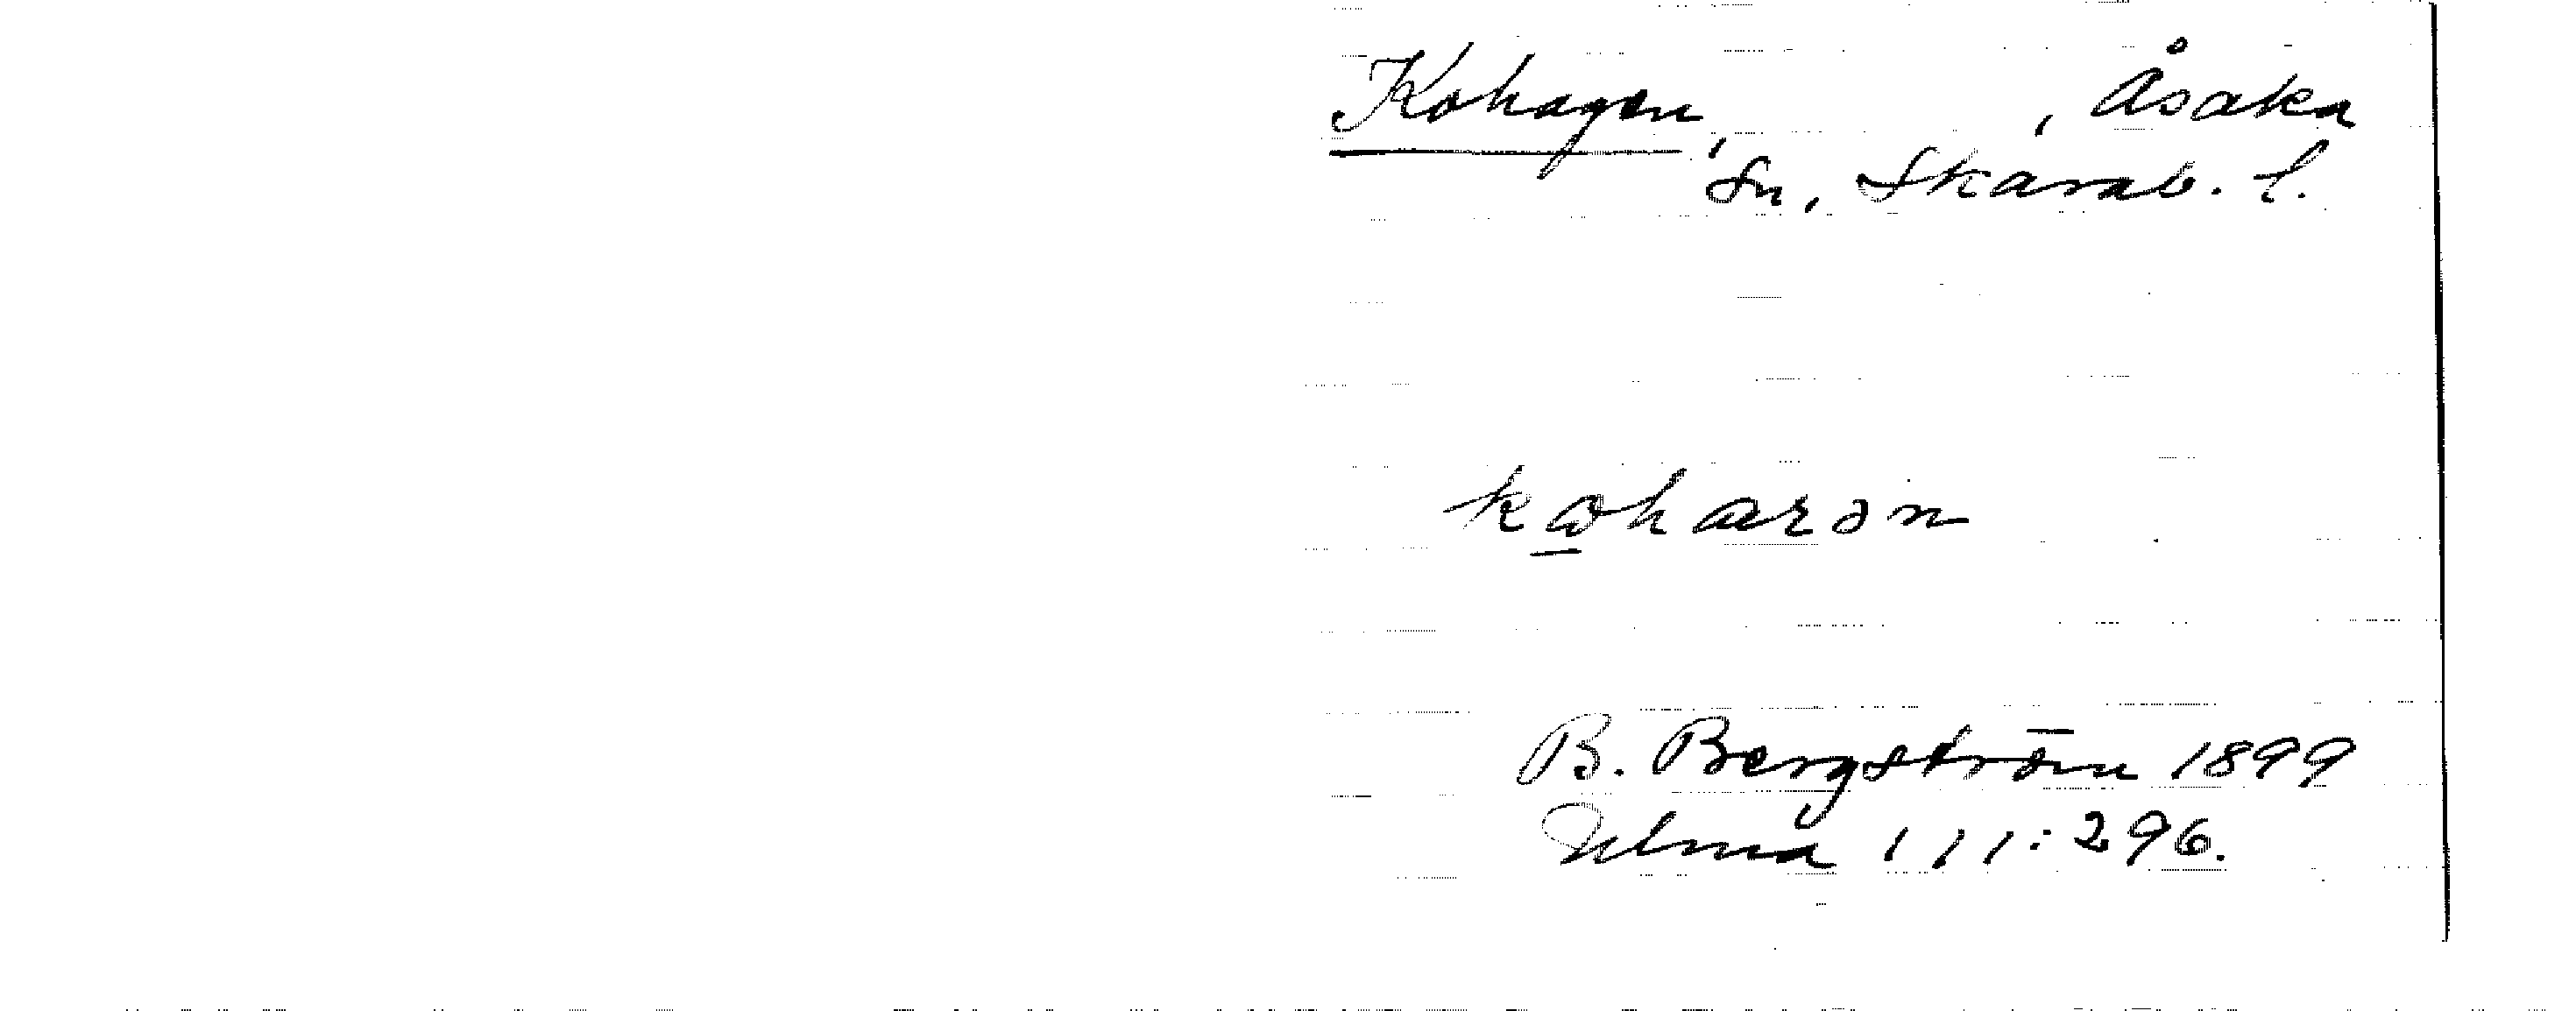 Kohagen, , Åsaka
sn, Skarab. l.
kohaɾən
B. Bergström 1899
Ulma 111:296.